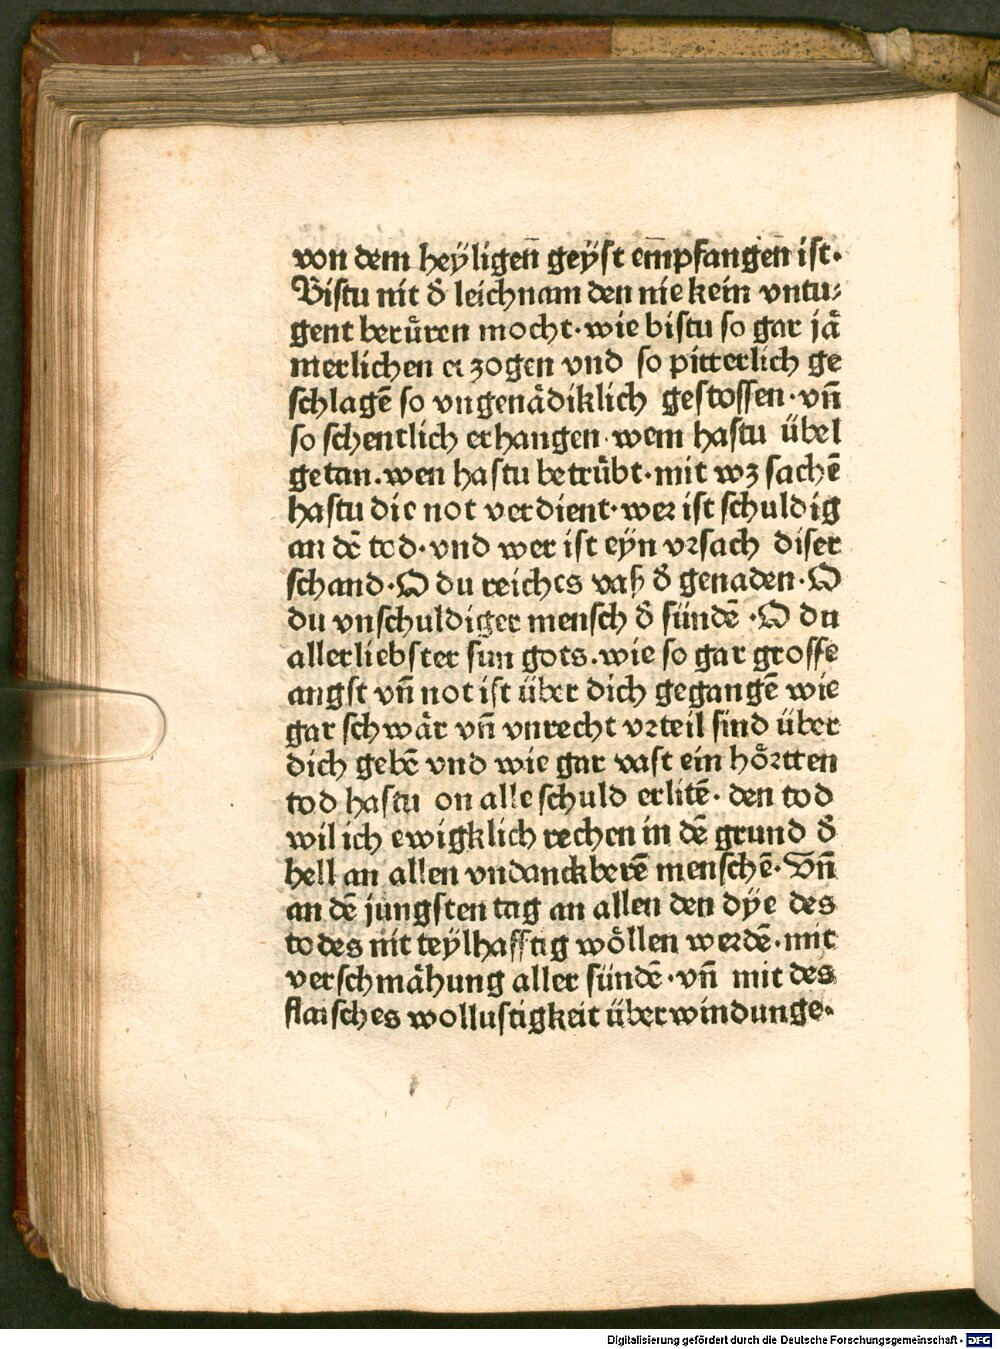 von dem heÿligen̄ geÿſt em̄pfangen̄ iſt·
Biſtu nit d̕ leichnam den nie kein vntu⸗
gent berůren mocht·wie biſtu ſo gar jä
merlichen erzogen vnd ſo pitterlich ge
ſchlagē ſo vngenädiklich geſtoſſen·vn̄
ſo ſchentlich erhangen·wem haſtu übel
getan.wen haſtu betrübt·mit wz ſachē
haſtu die not verdient·weꝛ iſt ſchuldig
an dē tod·vnd wer iſt eÿn vꝛſach diſer
ſchand·O du reiches vaſz d̕ genaden·O
du vnſchuldiger menſch d̕ ſündē·O du
allerliebſter ſun gots.wie ſo gar groſſe
angſt vn̄ not iſt über dich gegangē wie
gar ſchwär vn̄ vnrecht vꝛteil ſind über
dich gebē vnd wie gar vaſt ein höꝛtten
tod haſtu on alle ſchuld erlitē·den tod
wil ich ewigklich rechen in dē grund d̕
hell an allen vndanckberē menſchē·Vn̄
an dē jungſten tag an allen den dÿe des
todes nit teÿlhafftig wöllen weꝛdē·mit
verſchmähung aller ſündē·vn̄ mit des
flaiſches wolluſtigkeit überwindunge·
Digitalisierung gefördert durch die Deutsche Forschungsgemeinschaft - DFG